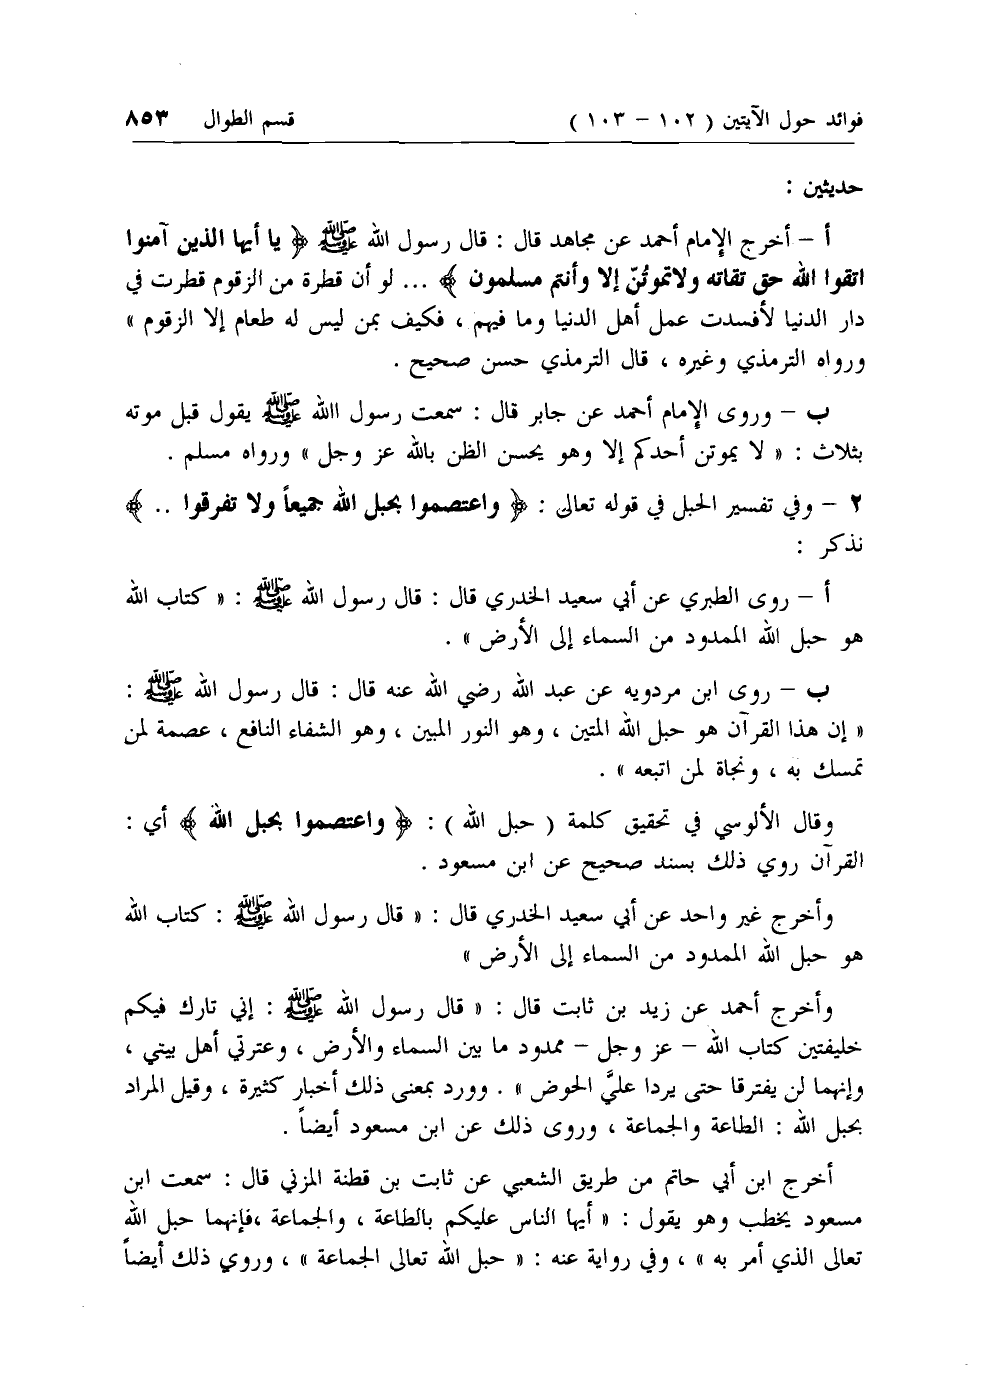 فوائد حول الآيتين ( ١٠٢ – ١٠٣ ) قسم الطوال ٨٥٣
حديثين :
أ – أخرج الإمام أحمد عن مجاهد قال : قال رسول الله ﷺ ﴿ يا أيها الذين آمنوا
اتقوا الله حق تقاته ولاتموتُنّ إلا وأنتم مسلمون ﴾ ... لو أن قطرة من الزقوم قطرت في
دار الدنيا لأفسدت عمل أهل الدنيا وما فيهم ، فكيف بمن ليس له طعام إلا الزقوم »
ورواه الترمذي وغيره ، قال الترمذي حسن صحيح .
ب – وروى الإمام أحمد عن جابر قال : سمعت رسول االله ﷺ يقول قبل موته
بثلاث : « لا يموتن أحدكم إلا وهو يحسن الظن بالله عز وجل » ورواه مسلم .
٢ – وفي تفسير الحبل في قوله تعالى : ﴿ واعتصموا بحبل الله جميعاً ولا تفرقوا .. ﴾
نذكر :
أ – روى الطبري عن أبي سعيد الخدري قال : قال رسول الله ﷺ : « كتاب الله
هو حبل الله الممدود من السماء إلى الأرض » .
ب – روى ابن مردويه عن عبد الله رضي الله عنه قال : قال رسول الله ﷺ :
« إن هذا القرآن هو حبل الله المتين ، وهو النور المبين ، وهو الشفاء النافع ، عصمة لمن
تمسك به ، ونجاة لمن اتبعه » .
وقال الألوسي في تحقيق كلمة ( حبل الله ) : ﴿ واعتصموا بحبل الله ﴾ أي :
القرآن روي ذلك بسند صحيح عن ابن مسعود .
وأخرج غير واحد عن أبي سعيد الخدري قال : « قال رسول الله ﷺ : كتاب الله
هو حبل الله الممدود من السماء إلى الأرض »
وأخرج أحمد عن زيد بن ثابت قال : « قال رسول الله ﷺ : إني تارك فيكم
خليفتين كتاب الله – عز وجل – ممدود ما بين السماء والأرض ، وعترتي أهل بيتي ،
وإنهما لن يفترقا حتى يردا عليَّ الحوض » . وورد بمعنى ذلك أخبار كثيرة ، وقيل المراد
بحبل الله : الطاعة والجماعة ، وروى ذلك عن ابن مسعود أيضاً .
أخرج ابن أبي حاتم من طريق الشعبي عن ثابت بن قطنة المزني قال : سمعت ابن
مسعود يخطب وهو يقول : « أيها الناس عليكم بالطاعة ، والجماعة ،فإنهما حبل الله
تعالى الذي أمر به » ، وفي رواية عنه : « حبل الله تعالى الجماعة » ، وروي ذلك أيضاً